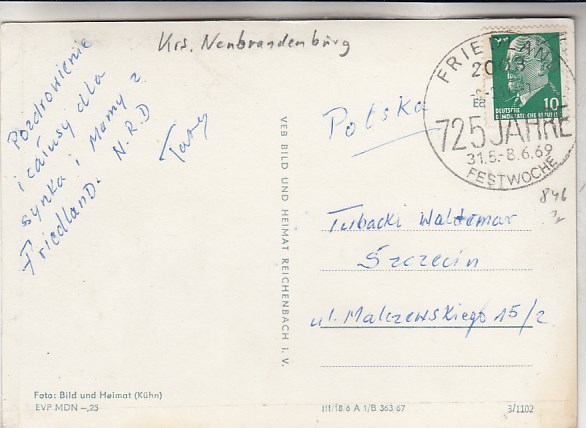 Krs. Neubrandenburg
Pozdrowienie
i całusy dla
synka i Mamy z
Friedland. N.R.D
Taty
VEB BILD UND HEIMAT REICHENBACH I. V.
FRIEDLAND
2003
725 JAHRE
31.5.-8.6.69
FESTWOCHE
10
DEUTSCHE
DEMOKRATISCHE REPUBLIK
Polska
846
Tubacki Waldemar
Szczecin
ul. Malczewskiego 15/2
Foto: Bild und Heimat (Kühn)
EVP MDN -,25
III/18/6 A 1/B 363 67
3/1102